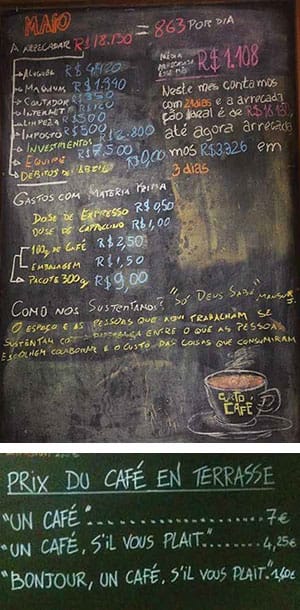 MAIO
A ARRECADAR R$18.130 = 863 POR DIA
R$1.108
ALUGUEL
MAQUINAS
CONTADOR
INTERNET
LIMPEZA R$500
IMPOSTO R$500
INVESTIMENTOS
EQUIPE R$7.500
R$0,00
Neste mês contamos
com 21 dias e a arrecada
até agora arrecada
mos R$3.326 em
3 dias
GASTOS COM MATERIA PRIMA
DOSE DE EXPRESSO R$0,50
DOSE DE CAPPUCCINO R$1,00
100g DE CAFÉ R$2,50
EMBALAGEM R$1,50
PACOTE 300g R$9,00
COMO NOS SUSTENTAMOS? "SÓ DEUS SABE"
O ESPAÇO E AS PESSOAS QUE AQUI TRABALHAM SE
SUSTENTAM ENTRE O QUE AS PESSOAS
ESCOLHEM COLABORAR E O CUSTO DAS COISAS QUE CONSUMIRAM
CURTO
CAFÉ
PRIX DU CAFÉ EN TERRASSE
"UN CAFÉ"..................7€
"UN CAFÉ, S'IL VOUS PLAIT".......4,25€
"BONJOUR, UN CAFÉ, S'IL VOUS PLAIT".1,40€